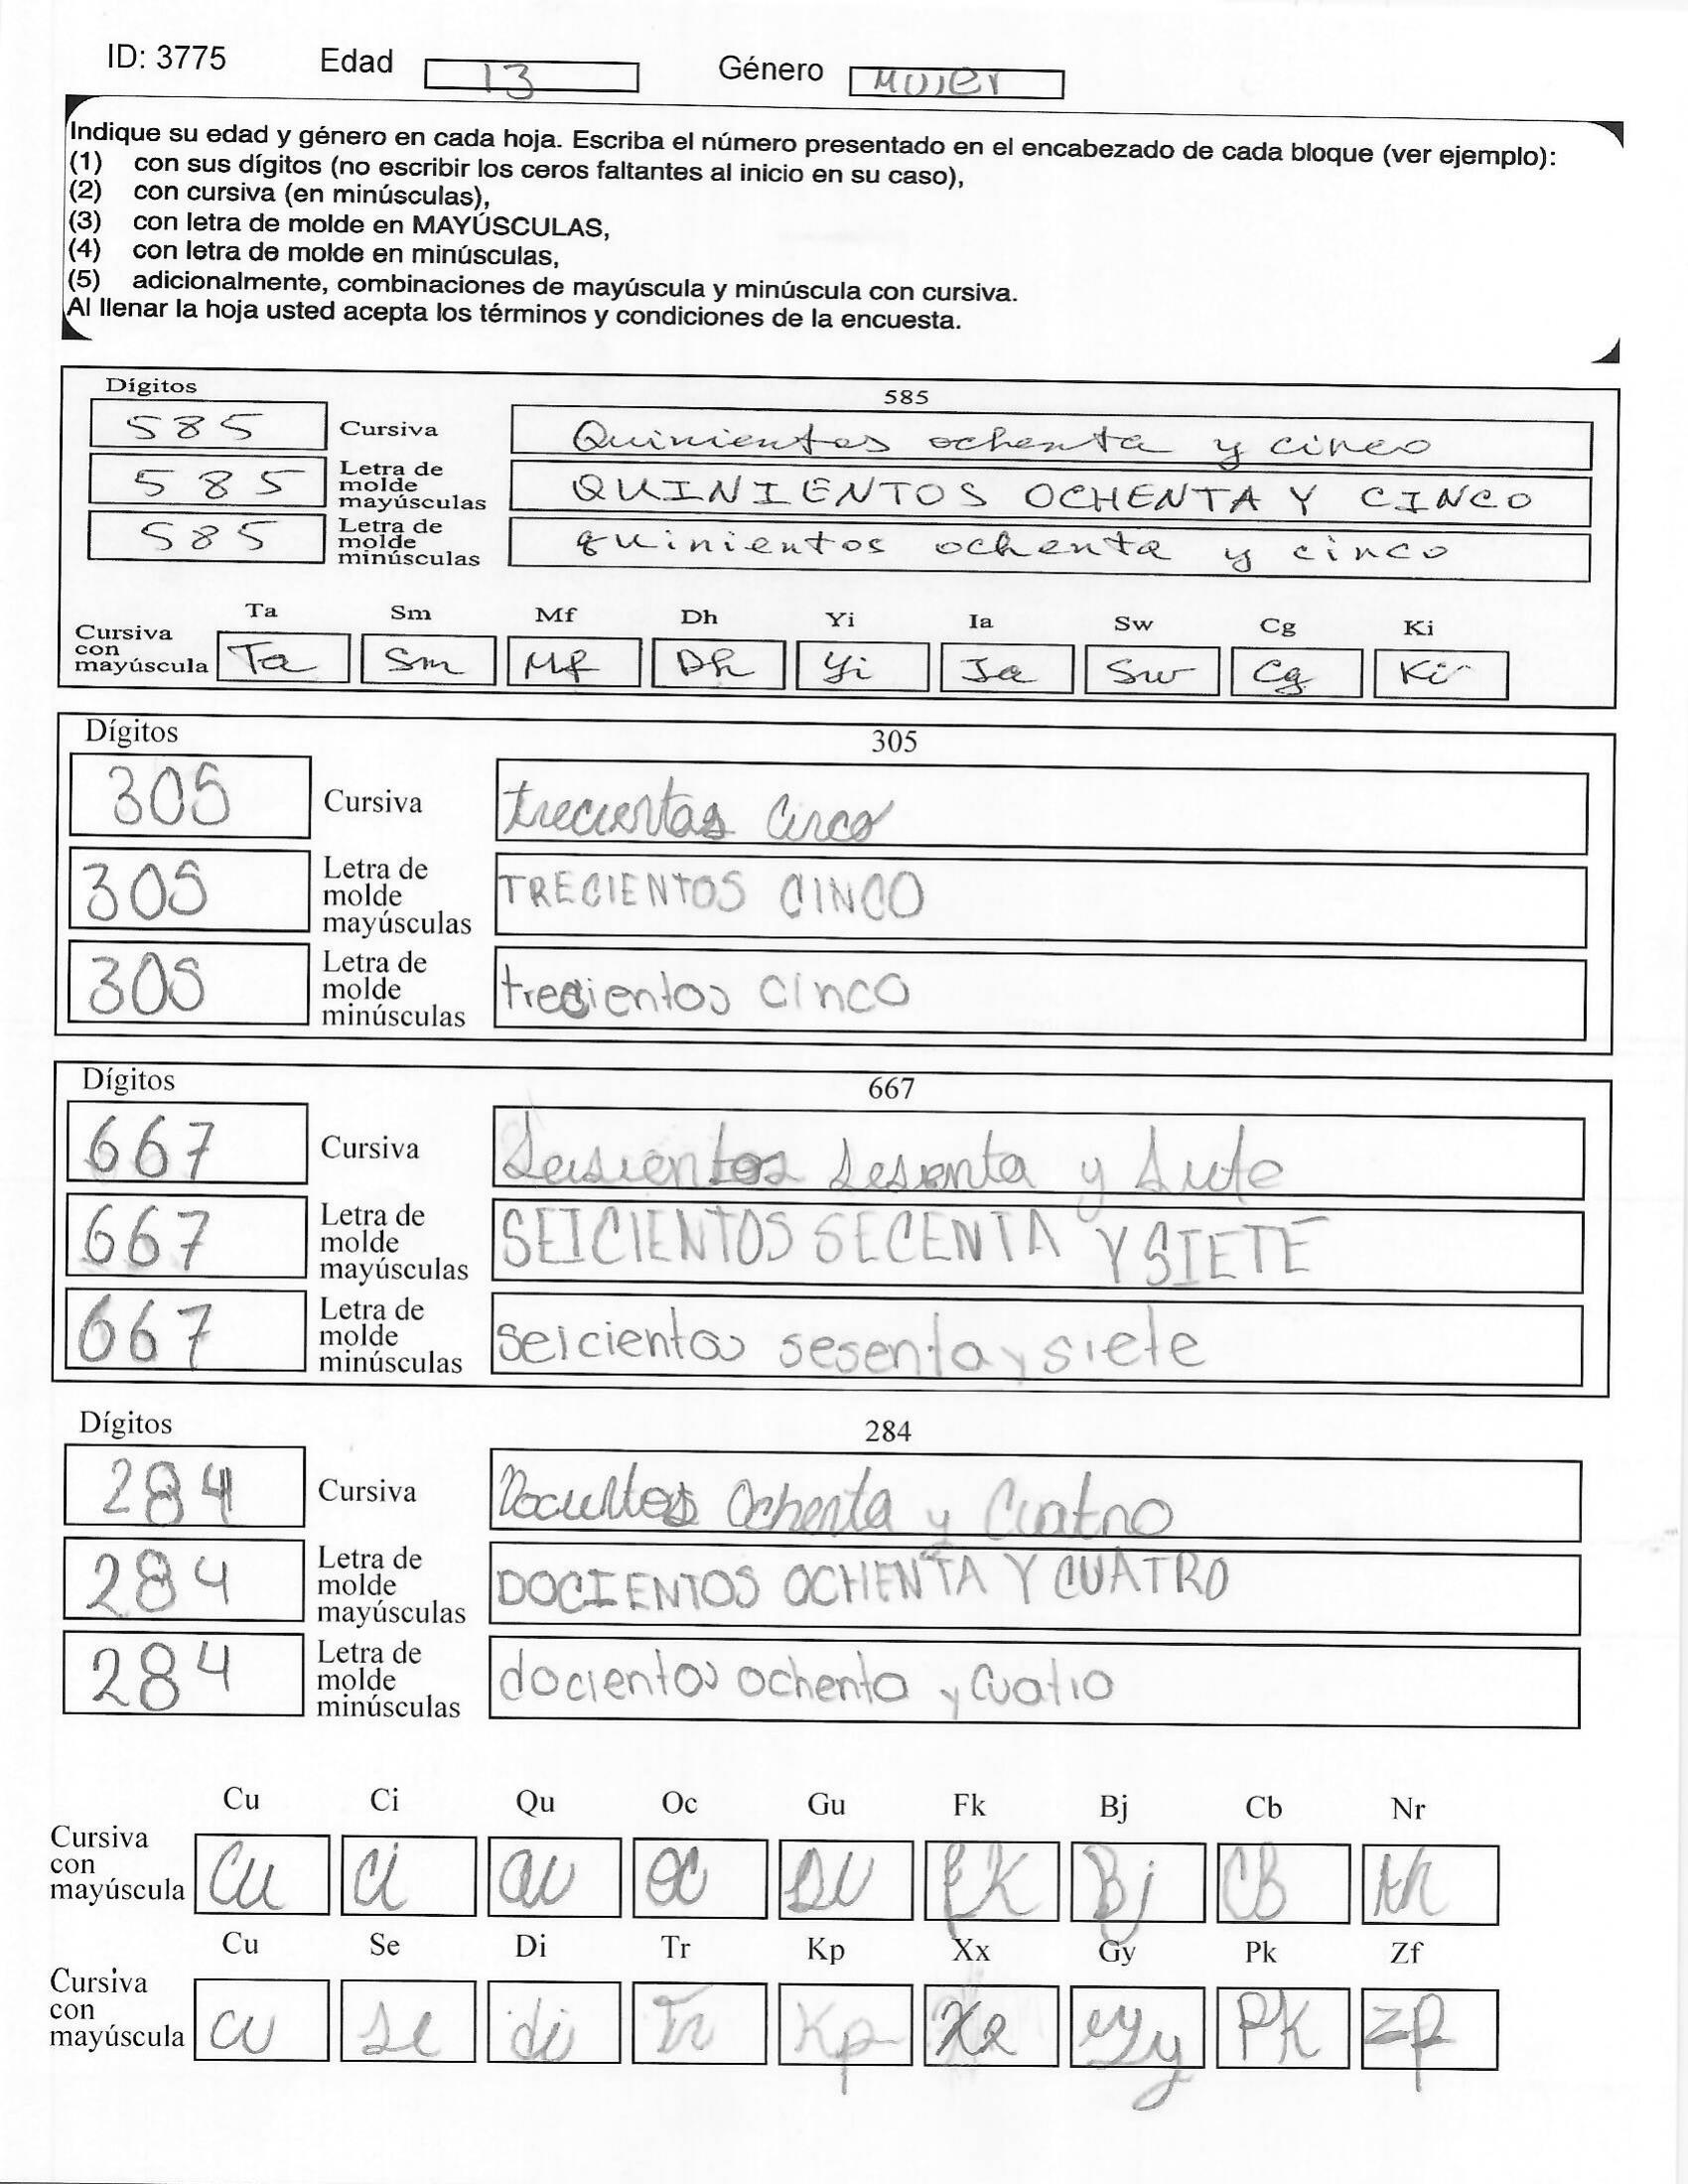 ID: 3775 Edad 13 Género Mujer
Indique su edad y género en cada hoja. Escriba el número presentado en el encabezado de cada bloque (ver ejemplo):
(1) con sus dígitos (no escribir los ceros faltantes al inicio en su caso),
(2) con cursiva (en minúsculas),
(3) con letra de molde en MAYÚSCULAS,
(4) con letra de molde en minúsculas,
(5) adicionalmente, combinaciones de mayúscula y minúscula con cursiva.
Al llenar la hoja usted acepta los términos y condiciones de la encuesta.
Dígitos 585
585 Cursiva Quinientos ochenta y cinco
585 Letra de molde mayúsculas QUINIENTOS OCHENTA Y CINCO
585 Letra de molde minúsculas quinientos ochenta y cinco
Ta Sm Mf Dh Yi Ia Sw Cg Ki
Cursiva con mayúscula Ta Sm Mf Dh Yi Ia Sw Cg Ki
Dígitos 305
305 Cursiva trecientos cinco
305 Letra de molde mayúsculas TRECIENTOS CINCO
305 Letra de molde minúsculas trecientos cinco
Dígitos 667
667 Cursiva Seisientos Sesenta y Siete
667 Letra de molde mayúsculas SEICIENTOS SECENTA Y SIETE
667 Letra de molde minúsculas seicientos sesenta y siete
Dígitos 284
284 Cursiva Docientos Ochenta y Cuatro
284 Letra de molde mayúsculas DOCIENTOS OCHENTA Y CUATRO
284 Letra de molde minúsculas docientos ochenta y cuatro
Cu Ci Qu Oc Gu Fk Bj Cb Nr
Cursiva con mayúscula Cu Ci Qu Oc Fk Bj CB
Cu Se Di Tr Kp Xx Gy Pk Zf
Cursiva con mayúscula Cu Se di Tr Kp Xx Gy PK Zf